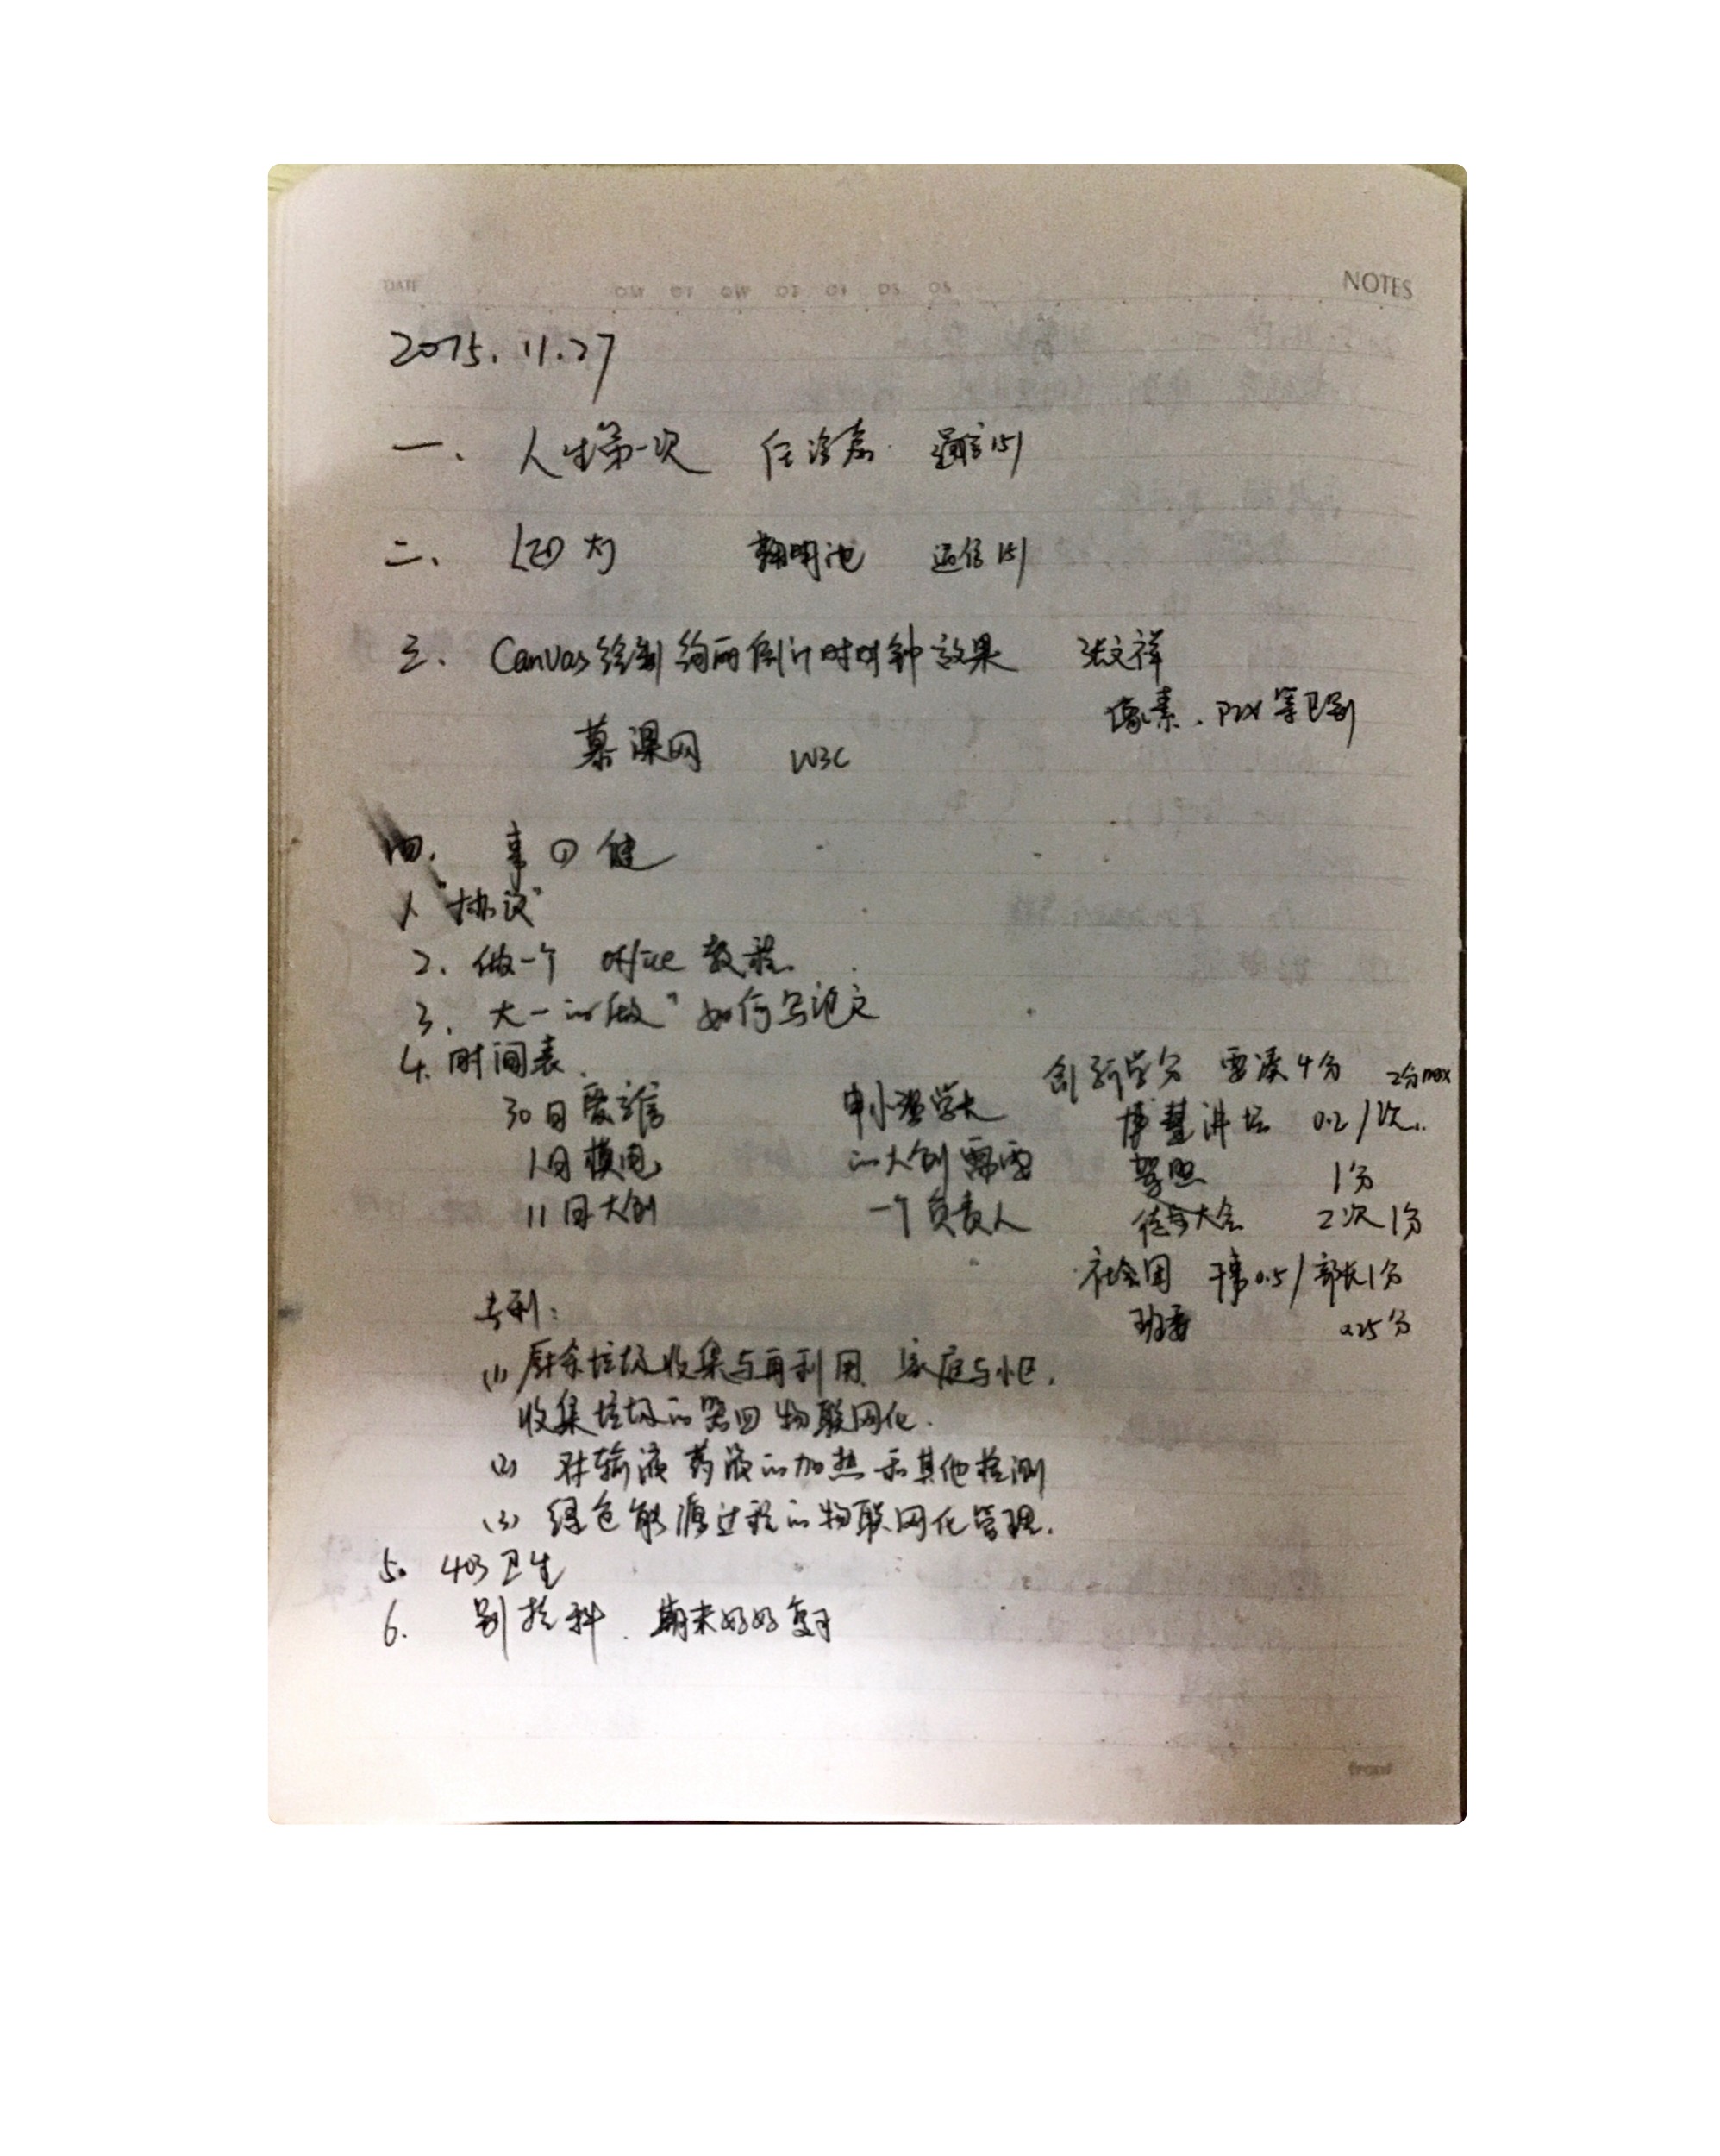 NOTES
2015.11.27
一、 人生第一次 任 通信151
二、 LED灯 翰明池 通信151
三、 Canvas绘制绚丽倒计时时钟效果 张文祥
像素、 等
慕课网 W3C
四、
1. "协议"
2. 做一个 office 教程
3. 大一的做" 如何写论文
4. 时间表.
创新学分 需凑4分 2分max
30日 博慧讲坛 0.2/次.
1日模电 的大创需要 驾照 1分
11日大创 一个负责人 大会 2次1分
社会团 干事0.5/部长1分
专利: 班委 0.25分
(1) 厨余垃圾收集与再利用. 家庭与小区.
收集垃圾的 物联网化.
(2) 对输液药液的加热和其他检测
(3) 绿色能源过程的物联网化管理.
5. 403卫生
6. 别挂科. 期末好好复习